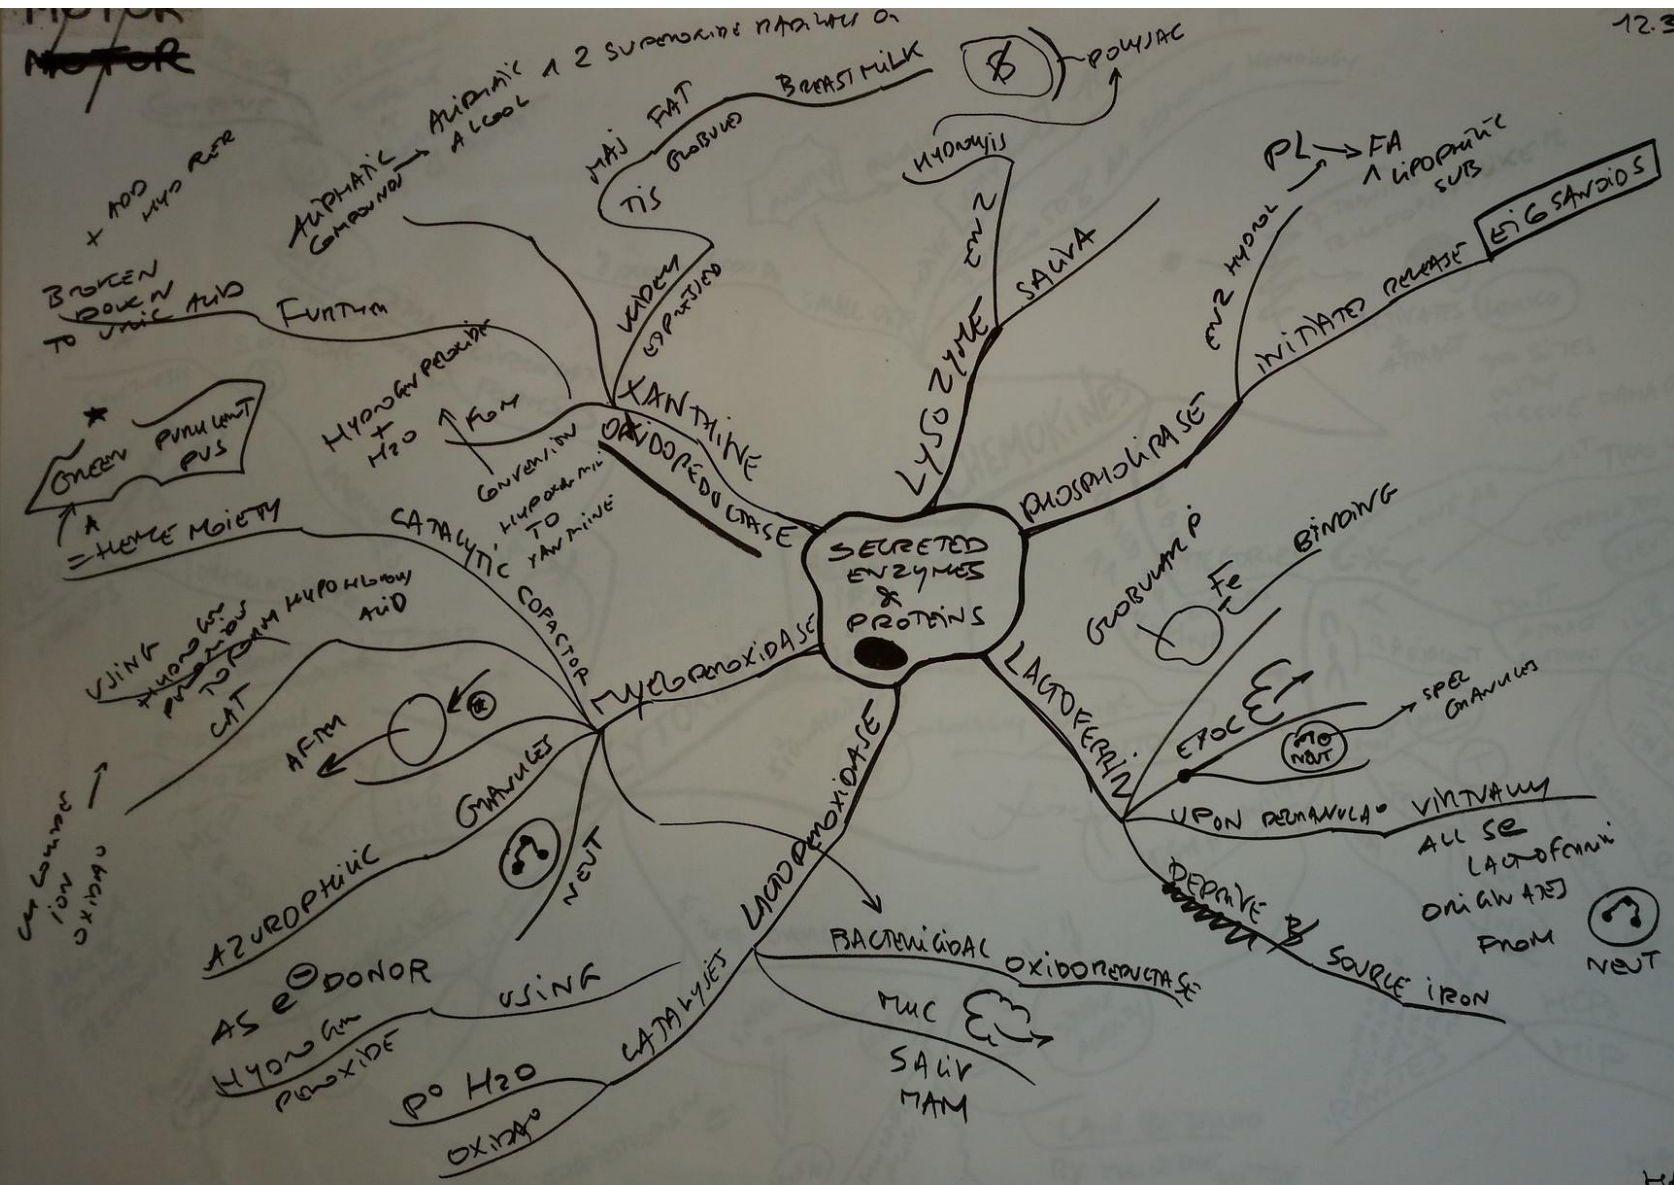 MOTOR
MOTOR
12.3
SECRETED
ENZYMES
&
PROTEINS
XANTHINE
OXIDOREDUCTASE
WIDELY
EXPRESSED
TIS
MAJ FAT
GLOBULES
BREAST MILK
ALIPHATIC
COMPOUNDS
ALIPHATIC
ALCOOL
1 2 SUPEROXIDE RADICALS
+ ADD
BROKEN
DOWN
TO URIC ACID
FURTHER
HYDROGEN PEROXIDE
+
H2O
FROM
CONVERSION
TO
XANTHINE
LYSOZYME
ENZ
HYDROLYSIS
POLYSAC
SALIVA
PHOSPHOLIPASE
ENZ HYDROL
PL → FA
1 LIPOPHILIC
SUB
INITIATED RELEASE
EICOSANOIDS
LACTOFERRIN
GLOBULAR P
Fe
BINDING
EXOC
NEUT
SPEC
GRANULES
UPON DEGRANULA°
VIRTUALLY
ALL SE
LACTOFERRIN
ORIGINATES
FROM
NEUT
DEPRIVE B
SOURCE IRON
LACTOPEROXIDASE
BACTERICIDAL
OXIDOREDUCTASE
MUC
SALIV
MAM
CATALYSES
PO H2O
OXIDA°
USING
HYDROGEN
PEROXIDE
AS e⊖ DONOR
MYELOPEROXIDASE
CATALYTIC
COFACTOR
= HEME MOIETY
GREEN
PURULENT
PUS
A
CAT
USING
HYDROGEN
PEROXIDE
TO FORM HYPOCHLOROUS
ACID
ION
OXIDA°
AFTER
GRANULES
AZUROPHILIC
NEUT